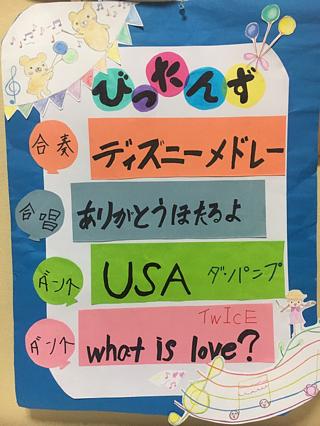 びったんず
合奏 ディズニーメドレー
合唱 ありがとうほたるよ
ダンス USA ダ・パンプ
TWICE
ダンス what is love?